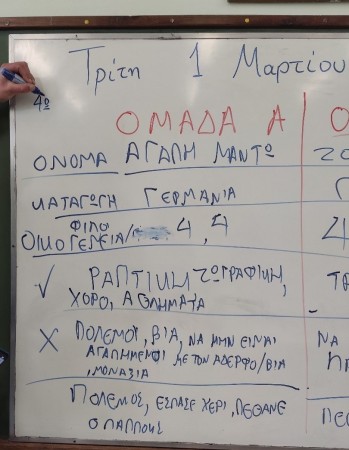 Τρίτη 1 Μαρτίου
4º
ΟΜΑΔΑ Α
ΟΝΟΜΑ ΑΓΑΠΗ ΜΑΝΤΩ
ΚΑΤΑΓΩΓΗ ΓΕΡΜΑΝΙΑ
ΦΙΛΟΙ
ΟΙΚΟΓΕΝΕΙΑ/ 4, 4
✓ ΡΑΠΤΙΚΗ ΖΩΓΡΑΦΙΚΗ,
ΧΟΡΟ, ΑΘΛΗΜΑΤΑ
X ΠΟΛΕΜΟΙ, ΒΙΑ, ΝΑ ΜΗΝ ΕΙΝΑΙ
ΑΓΑΠΗΜΕΝΟΙ ΜΕ ΤΟΝ ΑΔΕΡΦΟ/ΒΙΑ
, ΜΟΝΑΞΙΑ
ΠΟΛΕΜΟΣ, ΕΣΠΑΣΕ ΧΕΡΙ, ΠΕΘΑΝΕ
Ο ΠΑΠΠΟΥΣ